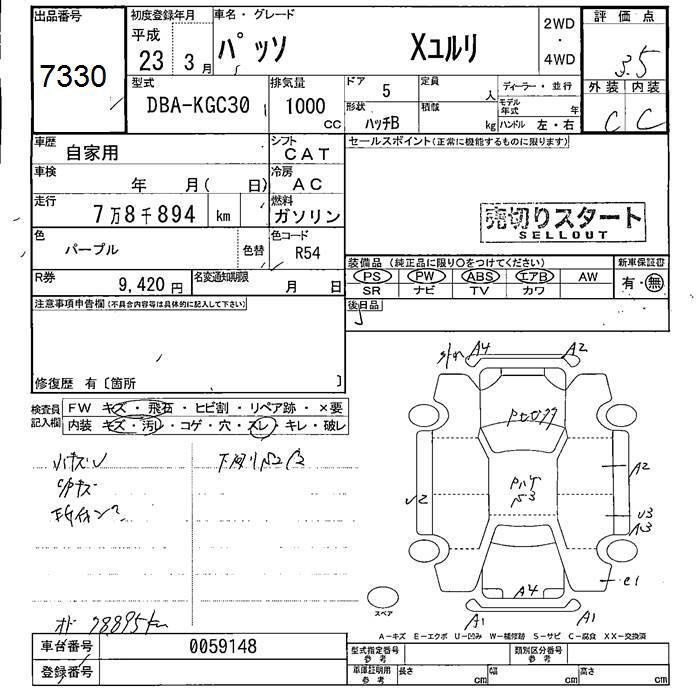 出品番号
7330
初度登録年月
平成
23 3月
車名・グレード
パッソ Xユルリ
2WD
・
4WD
評価点
3.5
外装 内装
C C
型式
DBA-KGC30
排気量
1000
CC
ドア
5
定員
人
形状
ハッチB
積載
kg
ディーラー・並行
モデル年式 年
ハンドル 左・右
車歴
自家用
シフト
CAT
セールスポイント(正常に機能するものに限ります)
車検
年 月( 日)
冷房
AC
走行
7万8千894 km
燃料
ガソリン
売切りスタート
SELLOUT
色
パープル
色替
色コード
R54
装備品(純正品に限り○をつけてください)
新車保証書
PS PW ABS エアB AW
SR ナビ TV カワ
有・無
R券
9,420円
名変通知期限
月 日
後日品
注意事項申告欄(不具合内容等は具体的に記入して下さい)
修復歴 有〔箇所 〕
検査員記入欄
FW キズ・飛石・ヒビ割・リペア跡・×要
内装 キズ・汚レ・コゲ・穴・スレ・キレ・破レ
小キズ
A4 A2
A2
U2
U3
A3
e1
A4
A1 A1
スペア
78895km
A−キズ E−エクボ U−凹み W−補修跡 S−サビ C−腐食 XX−交換済
車台番号
0059148
登録番号
型式指定番号
参考
類別区分番号
参考
車庫証明用
参考
長さ cm 幅 cm 高さ cm